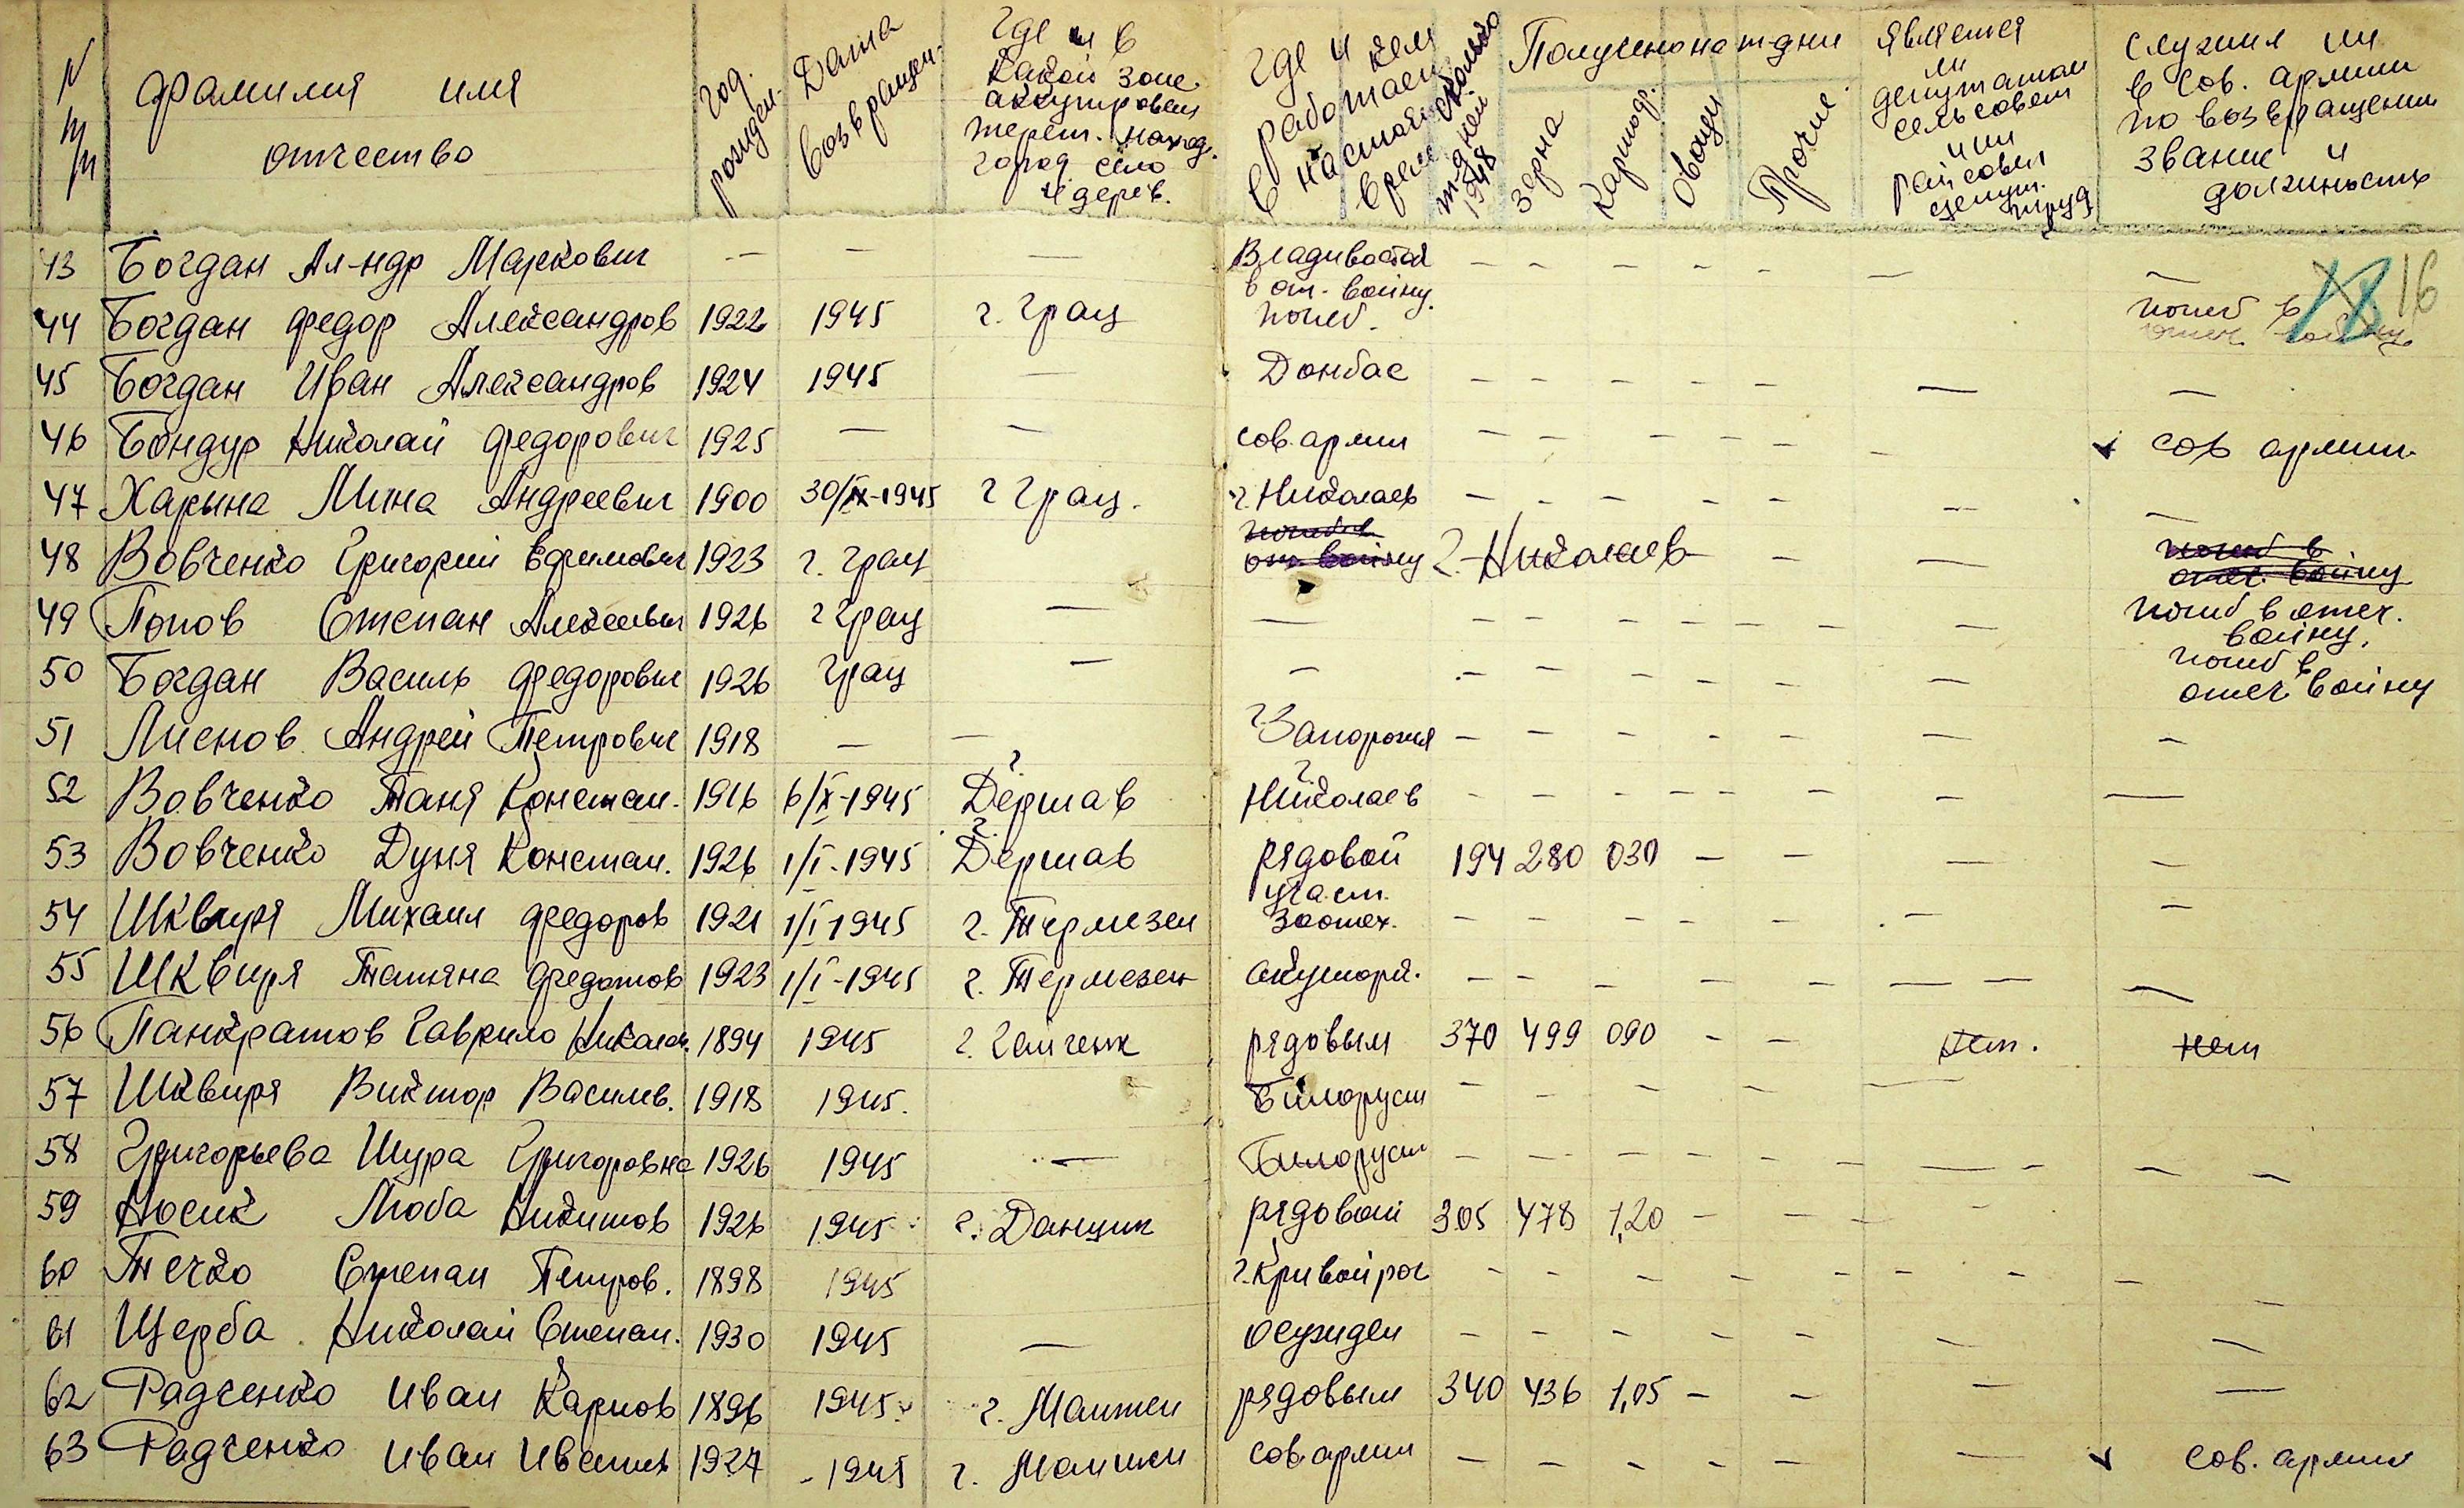 N п/п
Фамилия имя отчество
год рожден.
Дата возвращен.
Где и в какой зоне аккупирован терит. наход. город село и дерев.
Где и кем работает в настоящ время
сколько т-дней 1948
Получено на т-дни
зерна
картоф.
Овощи
Прочие
Является ли депутатом сельсовет или райсовет депут. труд
служил ли в сов. армии по возвращении звание и должность
16
43 Богдан Ал-ндр Маркович — — — Владивосток — — — — — — —
44 Богдан Федор Александров 1922 1945 г. Грац в от. войну. погиб. погиб в отеч войну
45 Богдан Иван Александров 1924 1945 — Донбас — — — — — — —
46 Бондур Николай Федорович 1925 — — сов. армии — — — — — — ✓ сов армии
47 Харына Мина Андреевич 1900 30/IX-1945 г Грац. г. Николаев — — — — — — —
48 Вовченко Григорий Ефимович 1923 г. Грац погиб в от. войну г. Николаев — — — погиб в отеч. войну
49 Попов Степан Алексеевич 1926 г Грац — — — — — — — — — погиб в отеч. войну.
50 Богдан Василь Федорович 1926 Грац — — — — — — — — погиб в отеч войну
51 Лиенов Андрей Петрович 1918 — — г. Запорожя — — — — — — —
52 Вовченко Таня Констан. 1916 6/X-1945 г. Дершав г. Николаев — — — — — — — —
53 Вовченко Дуня Констан. 1926 1/I-1945 г. Дершав рядовой 194 280 030 — — — —
54 Шквиря Михаил Федоров 1921 1/I-1945 г. Термезен участ. зоотех. — — — — — — —
55 Шквиря Татяна Федотов 1923 1/I-1945 г. Термезен акушорк. — — — — — — — —
56 Панкратов Гаврило Николаев. 1894 1945 г. рядовым 370 499 090 — — нет. нет
57 Шквиря Виктор Василев. 1918 1945. Билоруси — — — — —
58 Григорьева Шура Григоровна 1926 1945 — Билоруси — — — — — — — — — —
59 Носик Люба Никитов 1926 1945 г. Данциг рядовой 305 478 1,20 — — — —
60 Течко Степан Петров. 1898 1945 г. Кривой рог — — — — — — — — —
61 Щерба Николай Степан. 1930 1945 — осужден — — — — — — —
62 Радченко Иван Карпов 1896 1945 г. рядовым 340 436 1,05 — — — —
63 Радченко Иван Иванив 1927 - 1945 г. сов. армии — — — — — — ✓ сов. армии